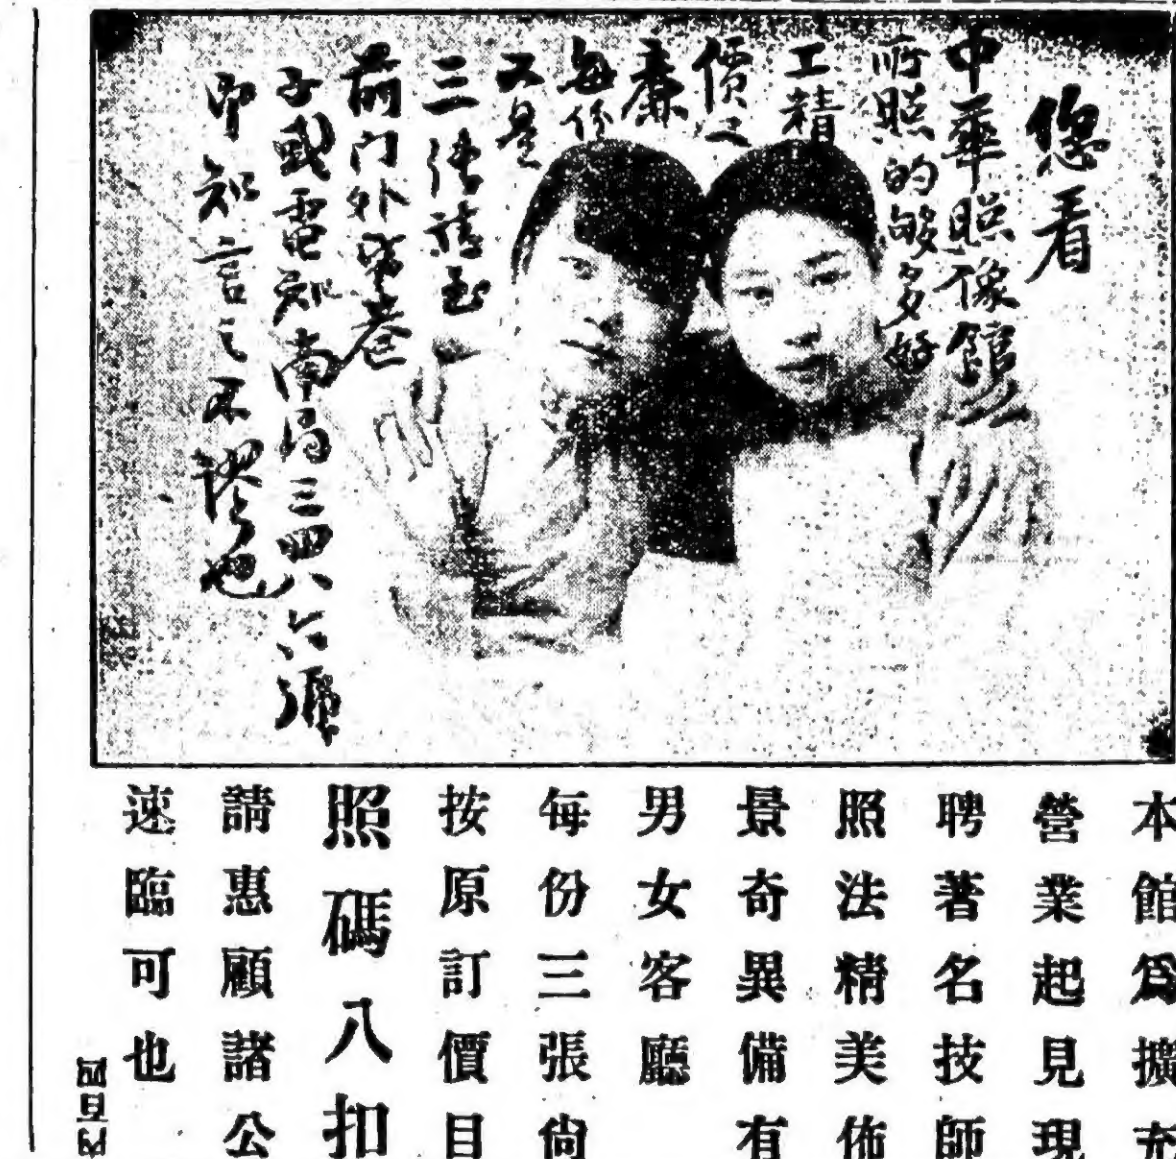 您看
中華照像館
所照的够多好
工精
價又
廉
每份
又是
三
前门外
子或電知南局三四八六號
即知言之不謬也
本館爲擴充
營業起見現
聘著名技師
照法精美佈
景奇異備有
男女客廳
每份三張尙
按原訂價目
照碼八扣
請惠顧諸公
速臨可也